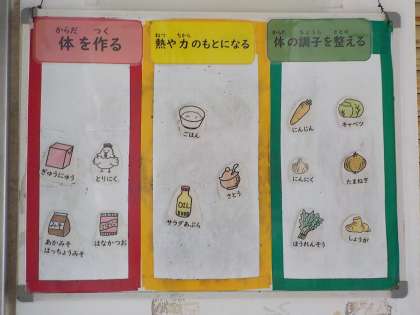 からだ つく
体を作る
ぎゅうにゅう
とりにく
あかみそ
はっちょうみそ
はなかつお
ねつ ちから
熱や力のもとになる
ごはん
さとう
OIL
サラダあぶら
からだ ちょうし ととの
体の調子を整える
にんじん
キャベツ
にんにく
たまねぎ
ほうれんそう
しょうが